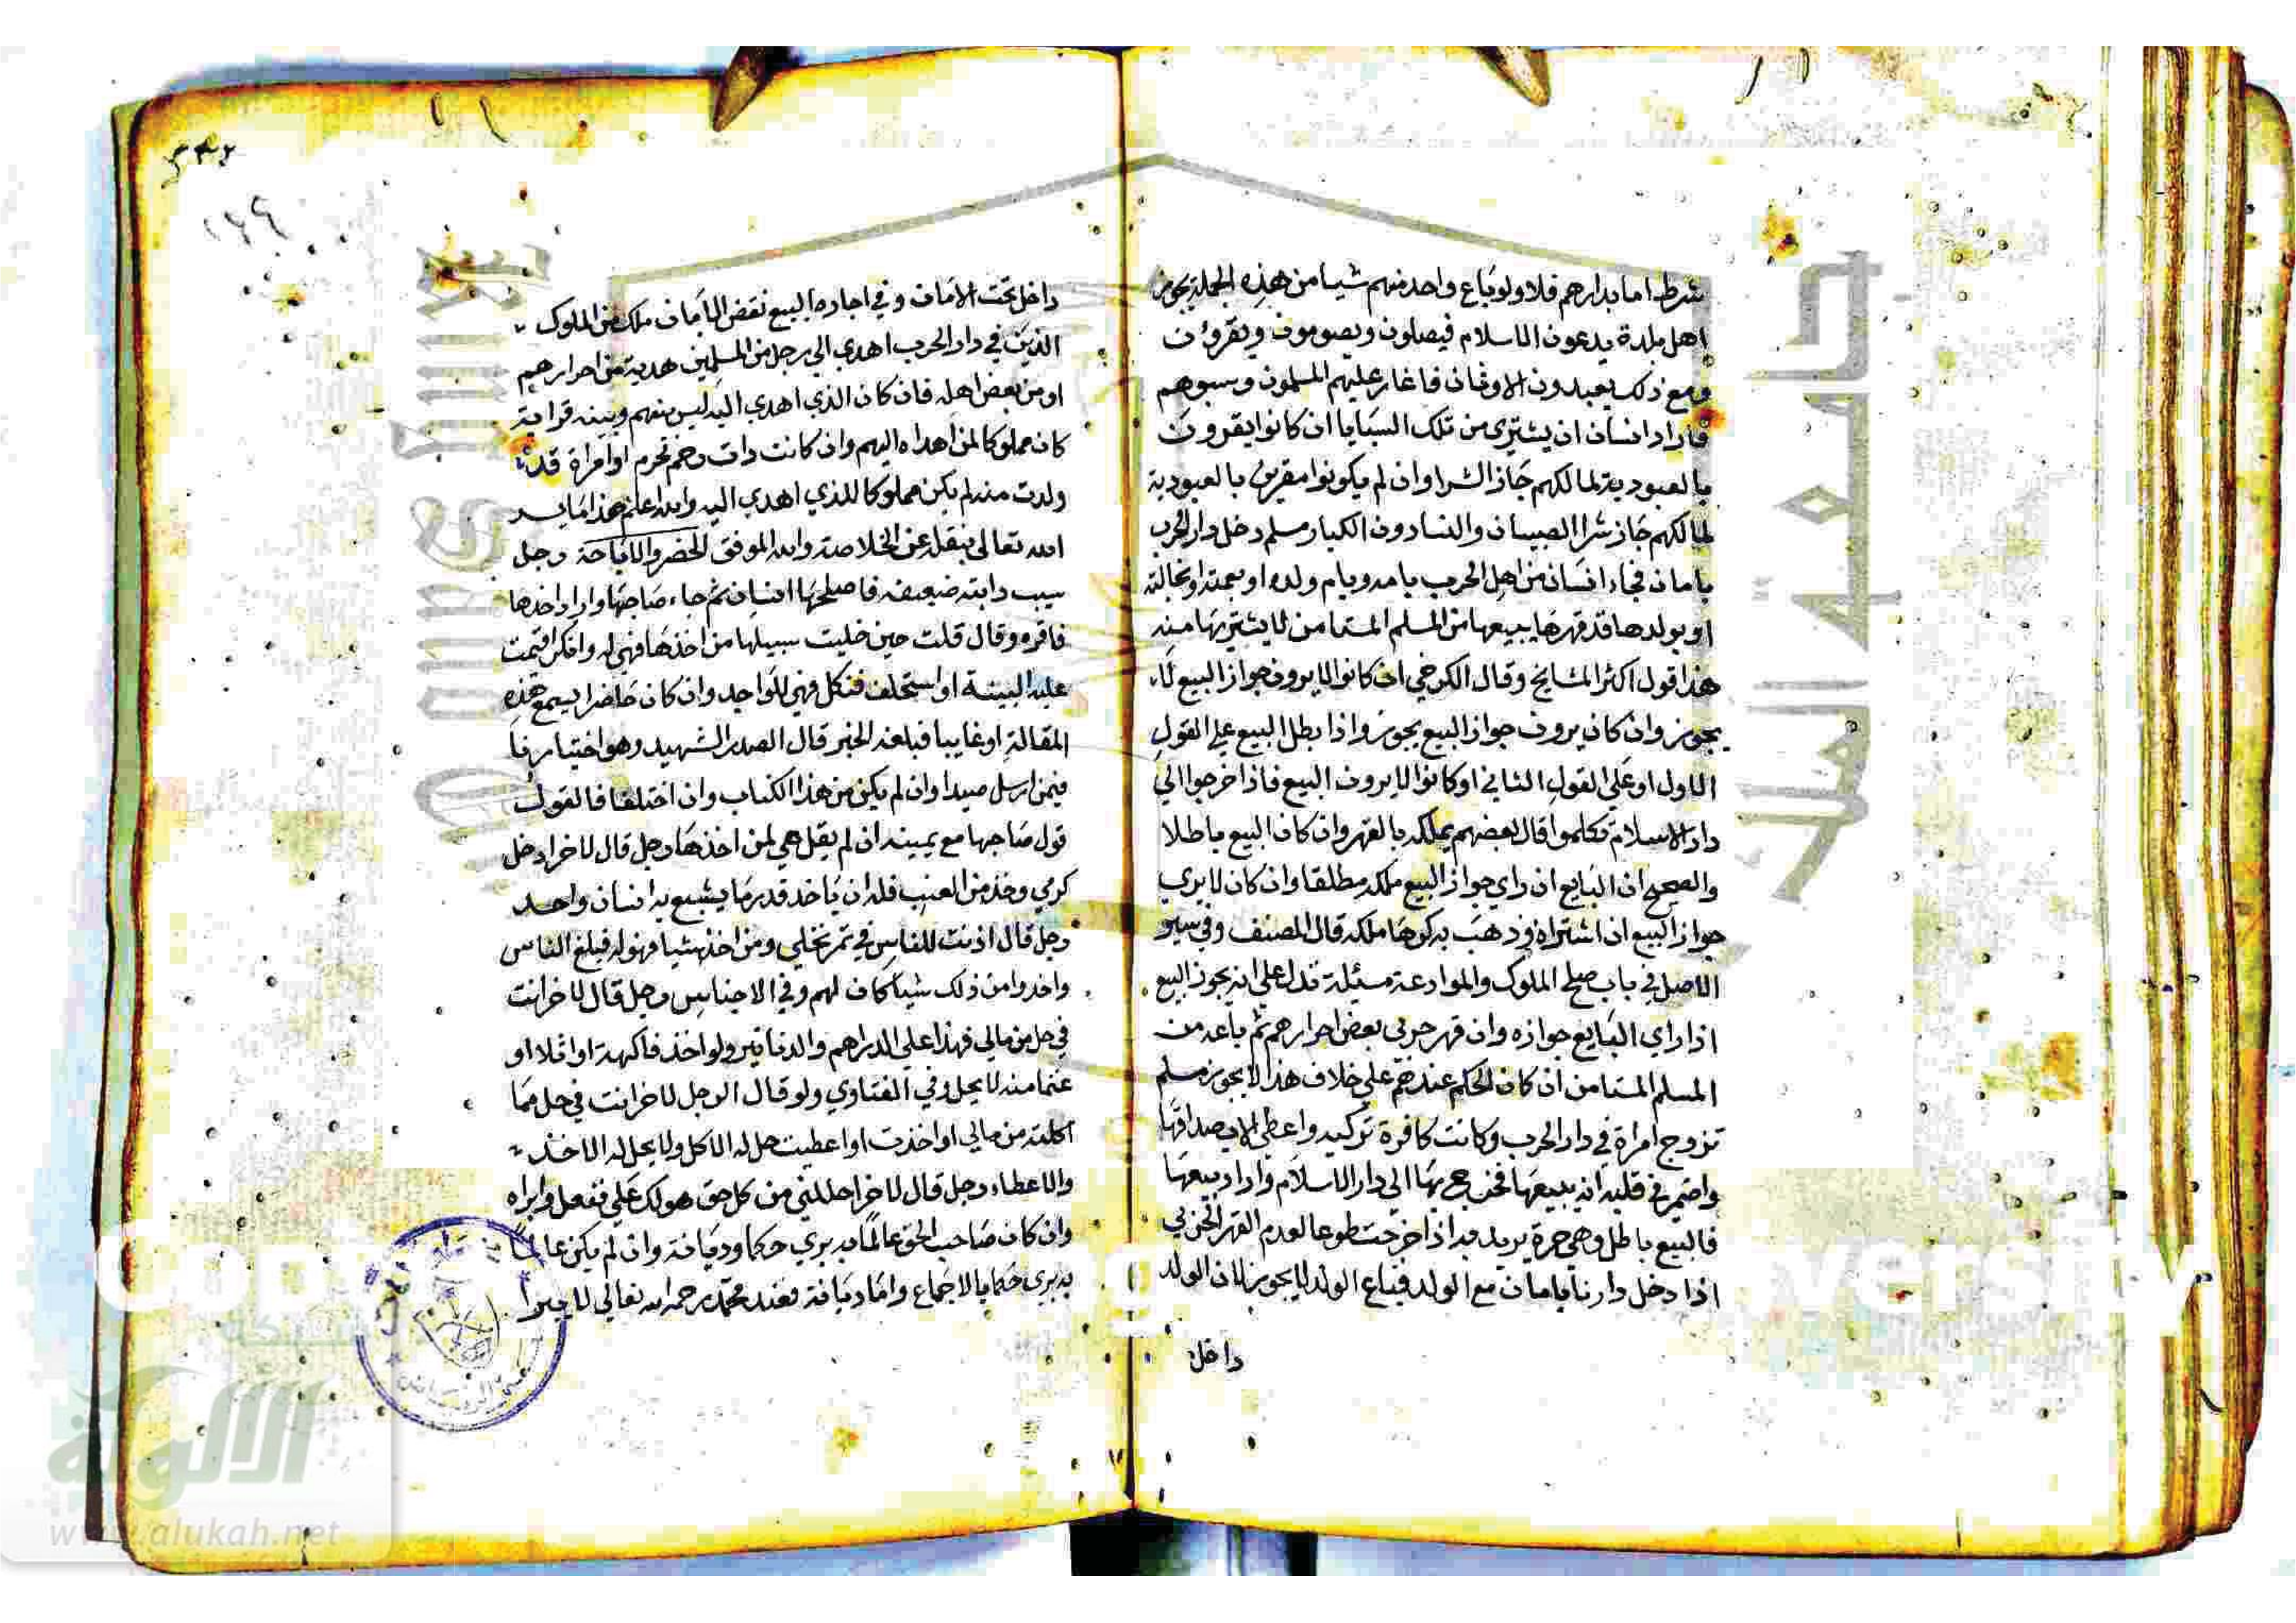 شرط اما بدارهم فلا ولو باع واحد منهم شيا من هذه الجملة يجوز
اهل بلدة يدعون الاسلام فيصلون ويصومون ويقرؤن
ومع ذلك يعبدون الاوثان فاغار عليهم المسلمون وسبوهم
فاراد انسان ان يشتري من تلك السبايا ان كانوا يقرون
بالعبودية لمالكهم جاز الشرا وان لم يكونوا مقرين بالعبودية
لمالكهم جاز شرا الصبيان والنسا دون الكبار مسلم دخل دار الحرب
بامان فجاء انسان من اهل الحرب بامه او بام ولده او بعمته او بخالته
او بولدها قد قهرها يبيعها من المسلم المستامن لا يشتريها منه
هذا قول اكثر المشايخ وقال الكرخي ان كانوا لا يرون جواز البيع لا
يجوز وان كان يرون جواز البيع يجوز واذا بطل البيع على القول
الاول او على القول الثاني او كانوا لا يرون البيع فاذا خرجوا الي
دار الاسلام تكلموا قال بعضهم يملكه بالقهر وان كان البيع باطلا
والصحيح ان البايع ان راي جواز البيع ملكه مطلقا وان كان لا يري
جواز البيع ان اشتراه وذهب به كرها ملكه قال المصنف وفي سير
الاصل في باب صلح الملوك والموادعة مسئلة تدل علي انه يجوز البيع
اذا راي البايع جوازه وان قهر حربي بعض احرارهم ثم باعه من
المسلم المستامن ان كان الحكم عندهم علي خلاف هذا لا يجوز مسلم
تزوج امراة في دار الحرب وكانت كافرة تركيه واعطي الاب صداقها
واضمر في قلبه انه يبيعها فخرج بها الي دار الاسلام واراد بيعها
فالبيع باطل وهي حرة يريد به اذا خرجت طوعا لعدم القهر الحربي
اذا دخل دارنا بامان مع الولد فباع الولد لا يجوز لان الولد
داخل
داخل تحت الامان وفي اجازة البيع نقض الامان ملك من الملوك
الذين في دار الحرب اهدي الي رجل من المسلمين هدية من احرارهم
او من بعض اهله فان كان الذي اهدي اليه ليس منهم وبينه قرابة
كان مملوكا لمن اهداه اليهم وان كانت ذات رحم محرم او امراة قد
ولدت منه لم يكن مملوكا للذي اهدي اليه والله اعلم هذا ما يسر
الله تعالى بنقله عن الخلاصة والله الموفق الحضر والاباحة رجل
سيب دابته ضعيفه فاصلحها انسان ثم جاء صاحبها واراد اخذها
فاقر وقال قلت حين خليت سبيلها من اخذها فهي له وانكر اقيمت
عليه البينة او استحلف فنكل فهي للواجد وان كان حاضرا يسمع هذه
المقالة او غايبا فبلغه الخبر قال الصدر الشهيد وهو اختيارنا
فيمن ارسل صيدا وان لم يكن من هذا الكتاب وان اختلفا فالقول
قول صاحبها مع يمينه ان لم يقل هي لمن اخذها رجل قال لاخر ادخل
كرمي وخذ من العنب فله ان ياخذ قدر ما يشبع به انسان واحد
رجل قال اذنت للناس في تمر نخلي ومن اخذ شيا فهو له فبلغ الناس
واخذوا من ذلك شيا كان لهم وفي الاجناس رجل قال لاخر انت
في حل من مالي فهذا علي الدراهم والدنانير ولو اخذ فاكهة او ابلا او
غنما منه لا يحل وفي الفتاوي ولو قال الرجل لاخر انت في حل مما
اكلته من مالي او اخذت او اعطيت حل له الاكل ولا يحل له الاخذ
والاعطاء رجل قال لاخر حللني من كل حق هو لك علي ففعل وابراه
وان كان صاحب الحق عالما به بري حكما وديانة وان لم يكن عالما
به بري حكما بالاجماع واما ديانة فعند محمد رحمه الله تعالى لا يبرا
جامعة الملك
الالوكة
www.alukah.net